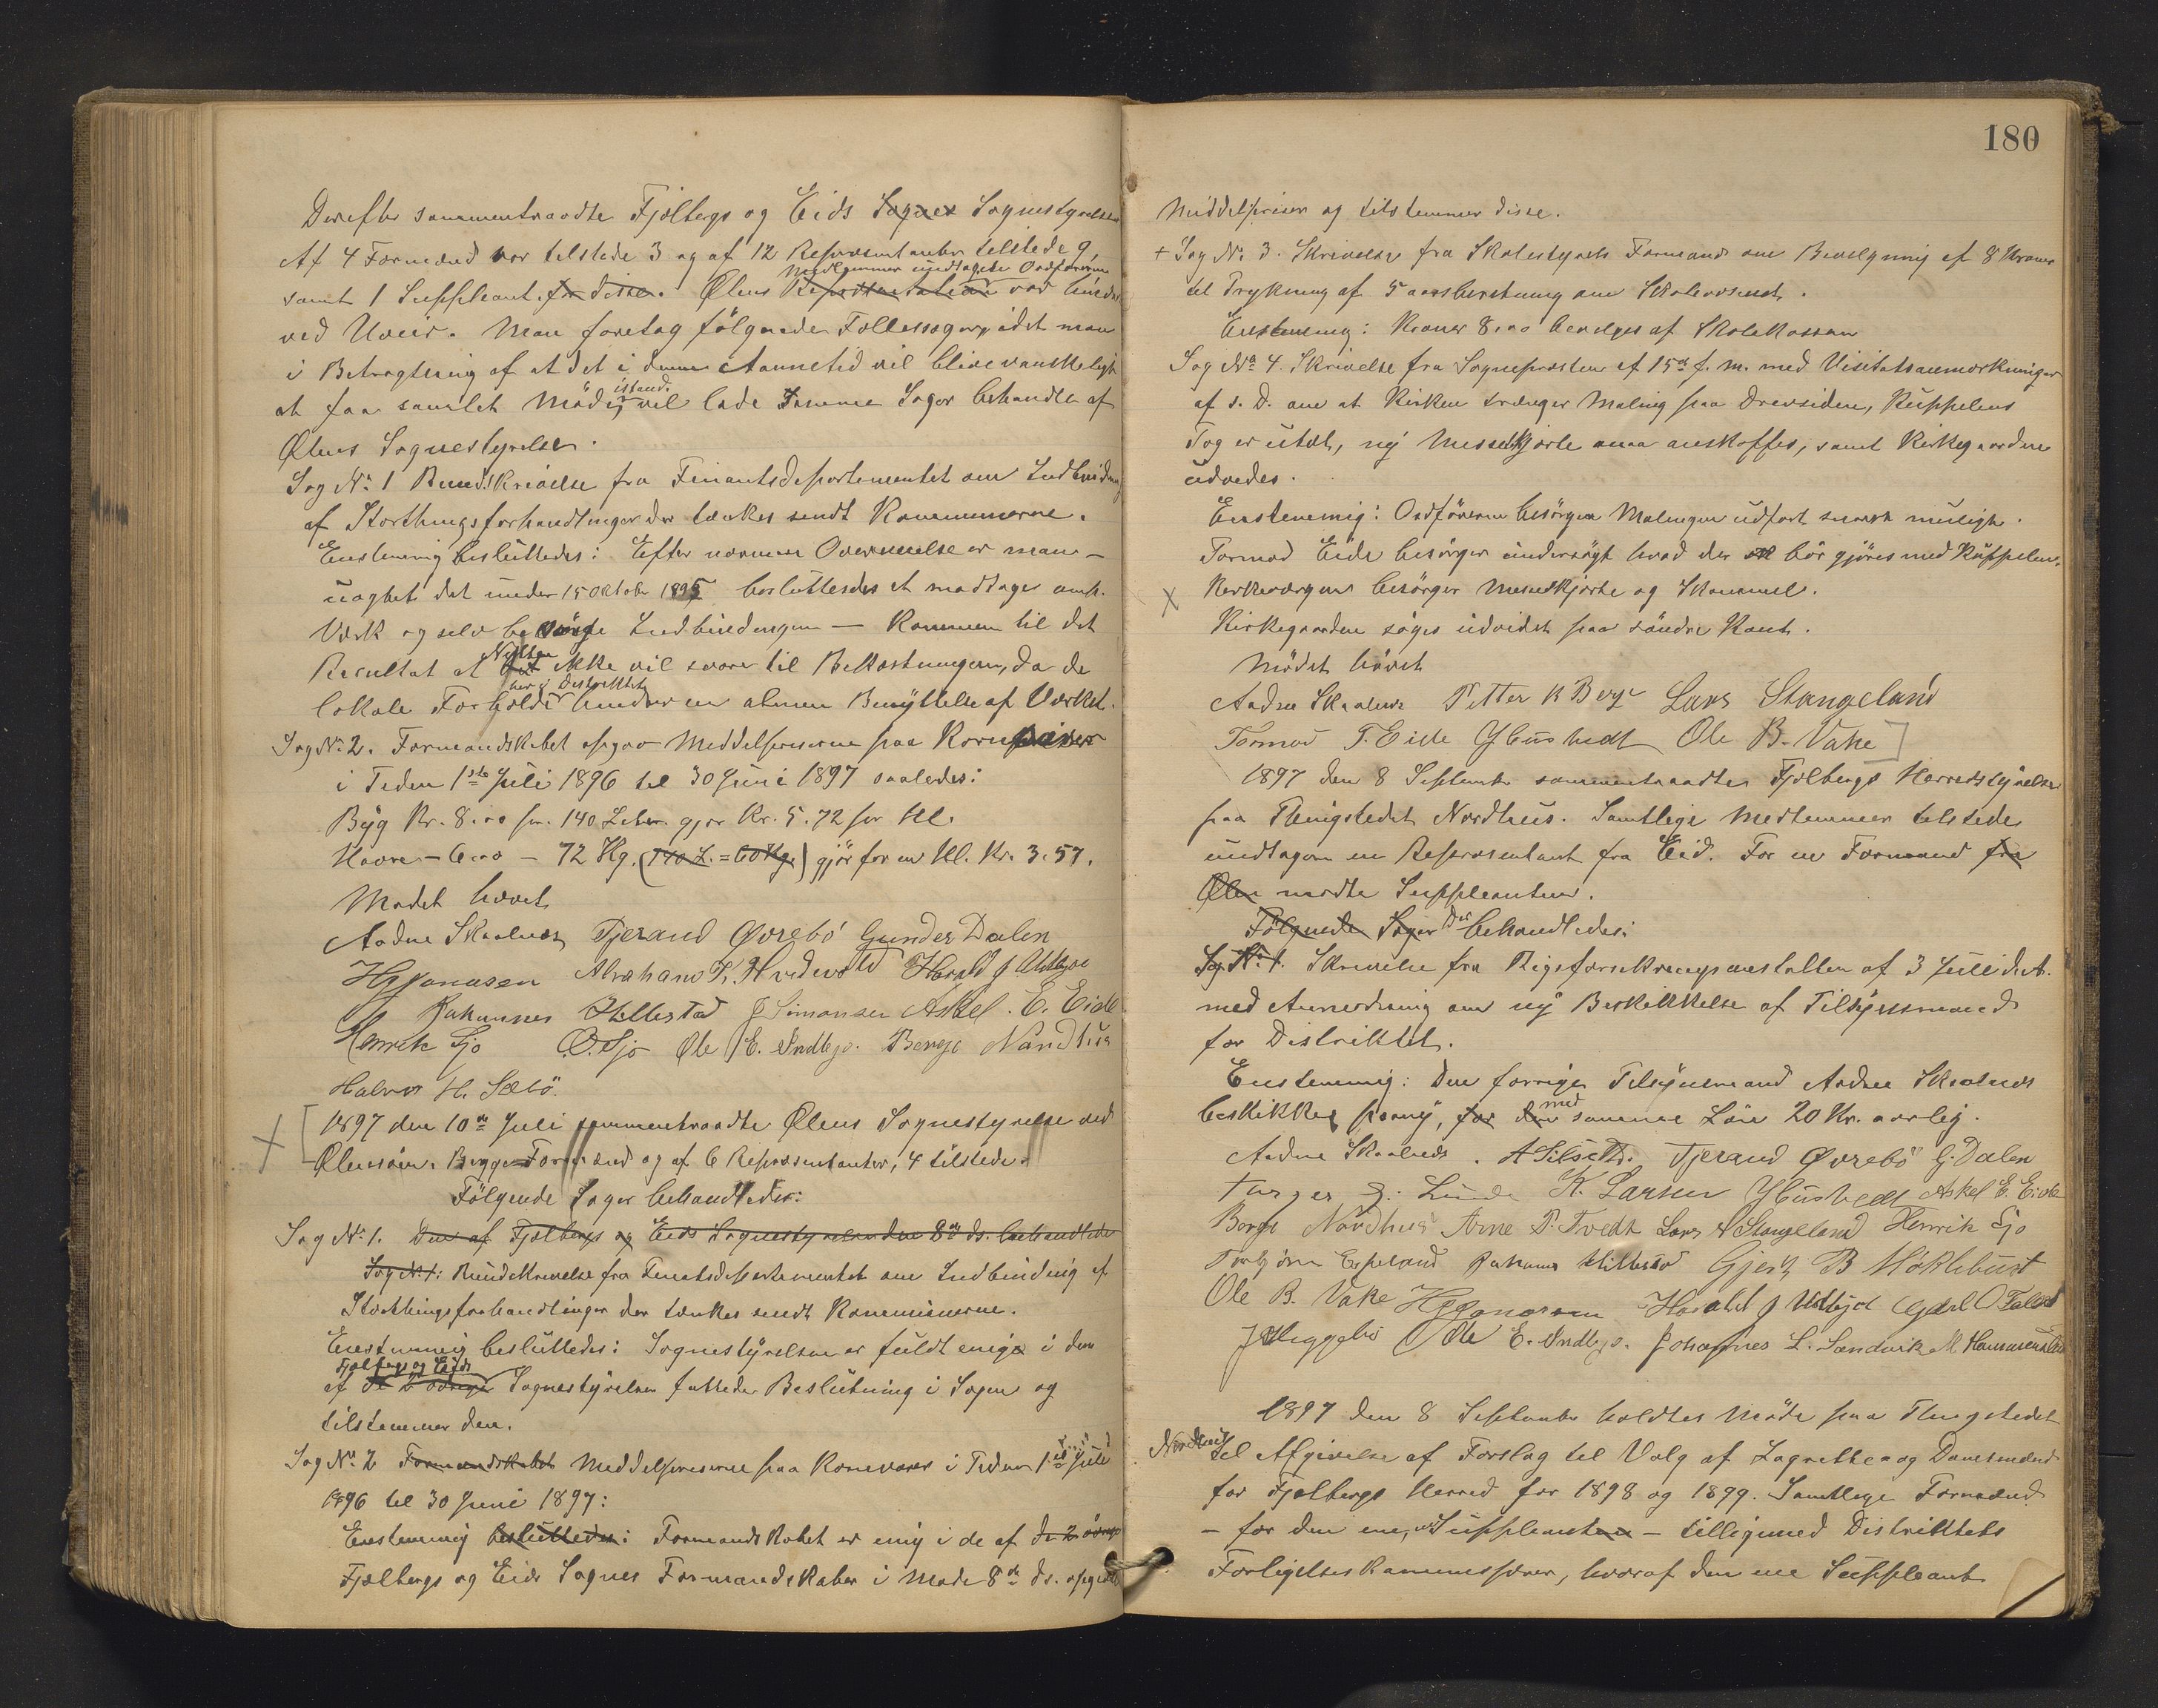 Derefter sammentraadte Fjelbergs og Eids Sognes Sognestyrelser
Af 4 Formænd var tilstede 3 og af 12 Repræsentanter tilstede 9,
Medlemmer undtagen Ordføreren
samt 1 Suppleant for disse. Ølens Repræsentation var hindret
ved Uveir. Man foretog følgende Fællessager, idet man
i Betragtning af at det i denne Aannetid vil blive vanskeligt
istand
at faa samlet Møde, vil lade samme Sager behandle af
Ølens Sognestyrelse.
Sag No 1 Rundskrivelse fra Finantsdepartementet om Indbinding
af Storthingsforhandlinger der tænkes sendt Kommunerne.
Enstemmig besluttedes: Efter nærmere Overveielse er man –
uagtet det under 15 Oktober 1895 besluttedes at modtage omh.
Værk og selv besørge Indbindingen – kommen til det
Nytten
Resultat at det ikke vil svare til Bekostningen, da de
her i Distriktet
lokale Forholde hindrer en almen Benyttelse af Værket.
Sag No 2. Formandskabet opgav Middelpriserne paa Kornvarer
i Tiden 1ste Juli 1896 til 30 Juni 1897 saaledes:
Byg Kr. 8.00 pr. 140 Liter gjør Kr. 5.72 per Hl.
Havre – 6.00 – 72 Kg. (140 L. = 60 Kg.) gjør for en Hl. Kr. 3.57.
Mødet hævet
Aadne Skaalnes Tjerand Øvrebö Gunder Dalen
HJonassen Abraham T. Harald J Utbjoe
Johannes Hillestad J Simonsen Askel E. Eide
Henrik Sjo O. Sjo Ole E. Indbjo. Børge Nordhus
Halvor H. Sæbö.
1897 den 10de Juli sammentraadte Ølens Sognestyrelse ved
Ølensøen. Begge Formænd og af 6 Repræsentanter, 4 tilstede.
Følgende Sager behandledes:
Sag No 1. Den af Fjelbergs og Eids Sognestyrelser den 8de ds. behandlede
Sag No 1: Rundskrivelse fra Finantsdepartementet om Indbinding af
Storthingsforhandlinger der tænkes sendt Kommunerne.
Enstemmig besluttedes: Sognestyrelsen er fuldt enig i den
Fjelbergs og Eids
af de 2 øvrige Sognestyrelser fattede Beslutning i Sagen og
tilstemmer den.
Sag No 2 Formandskabet Middelpriserne paa Kornvarer i Tiden 1ste Juli
1896 til 30 Juni 1897:
Enstemmig besluttedes: Formandskabet er enig i de af de 2 øvrige
Fjelbergs og Eids Sognes Formandskaber i Møde 8de ds. opgivne
180
Middelpriser og tilstemmer disse.
+ Sag No 3. Skrivelse fra Skolestyrets Formand om Bevilgning af 8 Kroner
til Trykning af 5 aarsberetning om Skolevæsenet.
Enstemmig: Kroner 8.00 bevilges af Skolekassen
Sag No 4. Skrivelse fra Sognepræsten af 15de f. m. med Visitatsanmærkninger
af s. D. om at Kirken trænger Maling paa Drevsiden, Kuppelens
Tag er utæt, ny Messeskjorte maa anskaffes, samt Kirkegaarden
udvides.
Enstemmig: Ordføreren besørger Malingen udført snarest muligt.
Tormod Eide besørger undersøgt hvad der bør gjøres med Kuppelen.
Kirkeværgen besørger Messeskjorte og Skammel.
Kirkegaarden søges udvidet paa søndre Kant.
Mødet hævet
Aadne Skaalnes Petter K Berge Lars Stangeland
Tormod T. Eide Ole B. Vake
1897 den 8 September sammentraadte Fjelbergs Herredstyrelse
paa Thingstedet Nordhus. Samtlige Medlemmer tilstede
undtagen en Repræsentant fra Eid. For en Formand fra
Ølen mødte Suppleanten.
Følgende Sager Der behandledes:
Sag No 1. Skrivelse fra Rigsforsikringsanstalten af 3 Juli d. A.
med Anmodning om ny Beskikkelse af Tilsynsmand
for Distriktet.
Enstemmig: Den forrige Tilsynsmand Aadne Skaalnes
med
beskikkes paany, for den samme Løn 20 Kr. aarlig.
Aadne Skaalnes. Tjerand Øvrebö G. Dalen
K. Larsen Askel E. Eide
Børge Nordhus Arne T. Tvedt Lars Stangeland Henrik Sjo
Torbjørn Espeland Johannes Hillestad B Moklebust
Ole B. Vake HJonassen Harald J Utbjoe
Ole E. Indbjo. Johannes L. Sandvik M.
1897 den 8 September holdtes Møde paa Thingstedet
Nordhus
til Afgivelse af Forslag til Valg af Lagrettes og Domsmænd
for Fjelbergs Herred for 1898 og 1899. Samtlige Formænd
– for den ene, Suppleanten – tilligemed Distriktets
Forligelseskommissærer, hvoraf den ene Suppleant